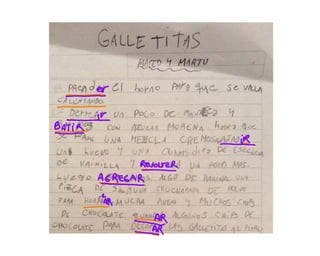 GALLETITAS
MATEO Y MARTU
PRENDer El horno PARA que SE VALLA
CALENTANDO.
DERRETir UN POCO DE Y
BATIR CON AZUCAR MORENA HASTA QUE
SE UNA MEZCLA CREMOSA
UN HUEVO Y UNA CUCHARADITA DE ESENCIA
DE VAINILLA Y REVOLVER UN POCO MAS.
LUEGO AGREGAR ALGO DE HARINA UNA
PIZCA DE SAL UNA CUCHARADA DE POLVO
PARA HORNEAR MUCHA AVENA Y MUCHOS CHIPS
DE CHOCOLATE. ALGUNOS CHIPS DE
CHOCOLATE PARA DECORAR LAS GALLETITAS AL